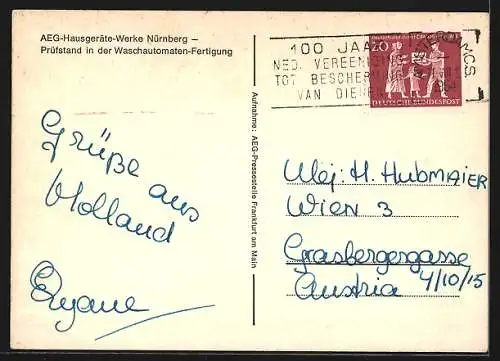 AEG-Hausgeräte-Werke Nürnberg —
Prüfstand in der Waschautomaten-Fertigung
100 JAAR
NED. VEREENIGING
TOT BESCHERMING
VAN DIEREN
20
DEUTSCHE BUNDESPOST
Aufnahme: AEG-Pressestelle Frankfurt am Main
Grüße aus
Holland
Mej: H. HubMAIER
WIEN 3
Grasbergergasse
4/10/15
Austria